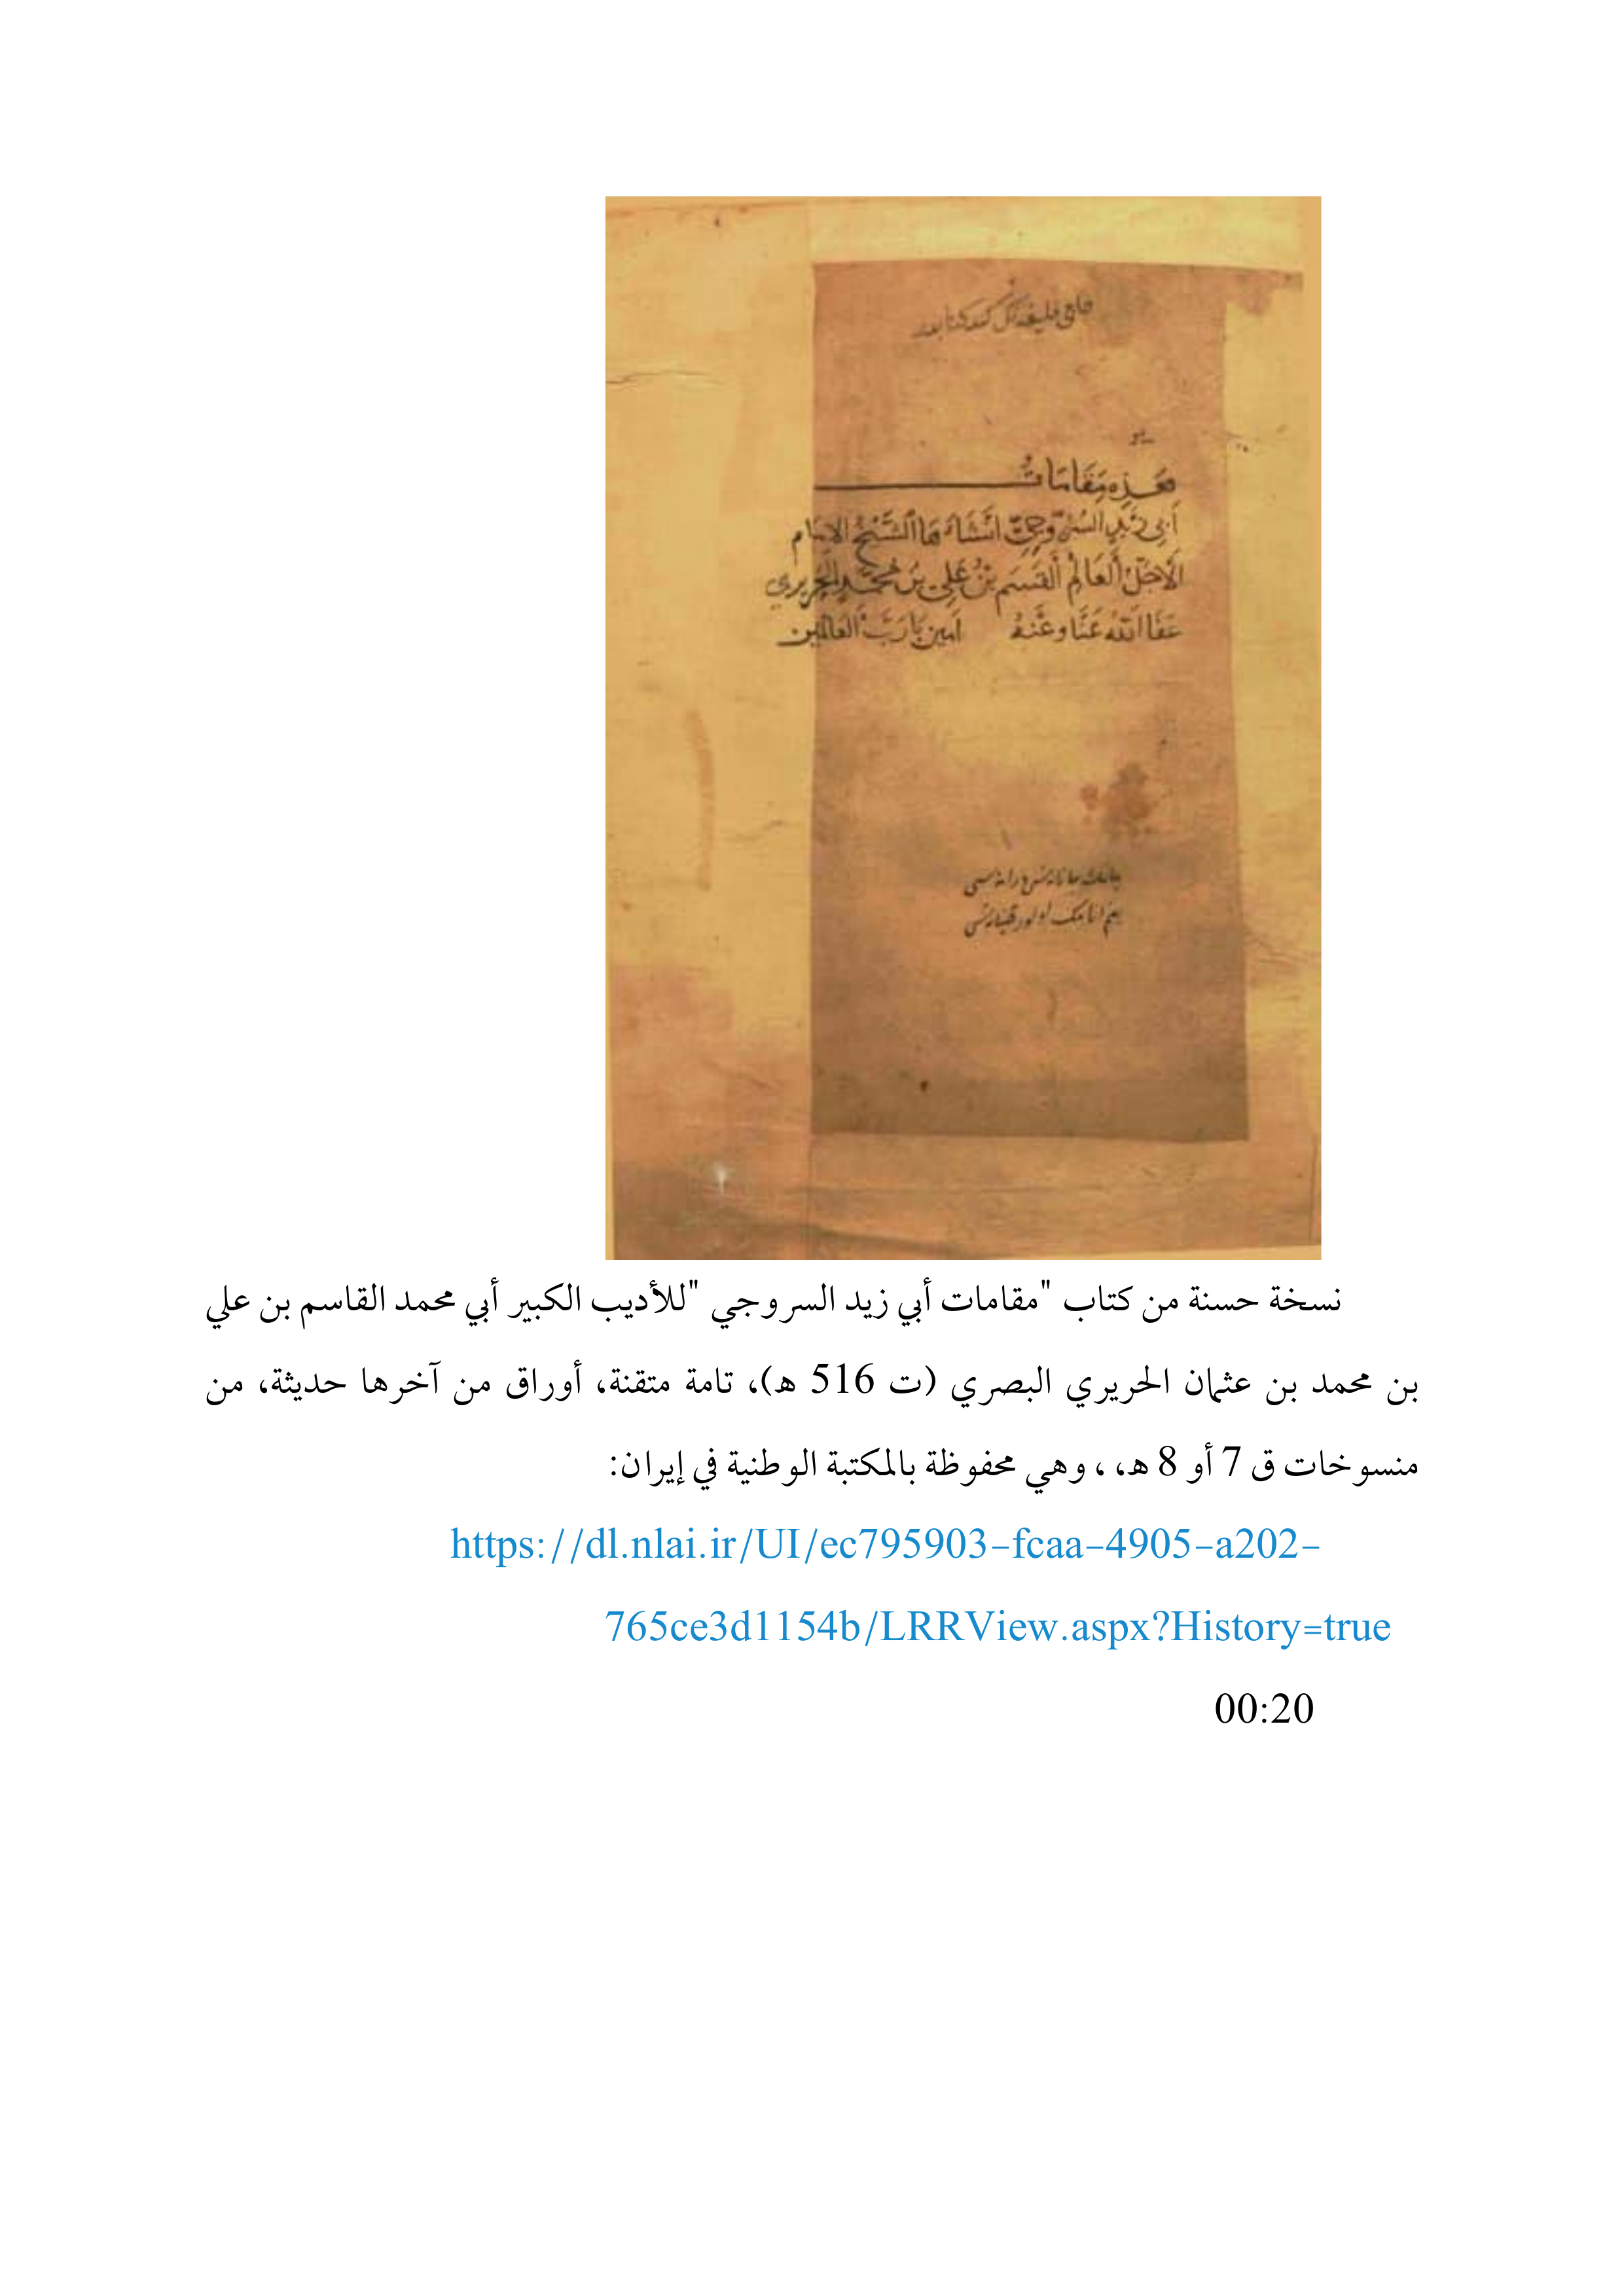 هذه مقامات
أبي زيد السروجي انشاءها الشيخ الامام
الاجل العالم القسم بن علي بن محمد الحريري
عفا الله عنا وعنه امين يا رب العالمين
نسخة حسنة من كتاب "مقامات أبي زيد السروجي "للأديب الكبير أبي محمد القاسم بن علي
بن محمد بن عثمان الحريري البصري (ت 516 ه)، تامة متقنة، أوراق من آخرها حديثة، من
منسوخات ق 7 أو 8 ه، ، وهي محفوظة بالمكتبة الوطنية في إيران:
https://dl.nlai.ir/UI/ec795903-fcaa-4905-a202-
765ce3d1154b/LRRView.aspx?History=true
00:20